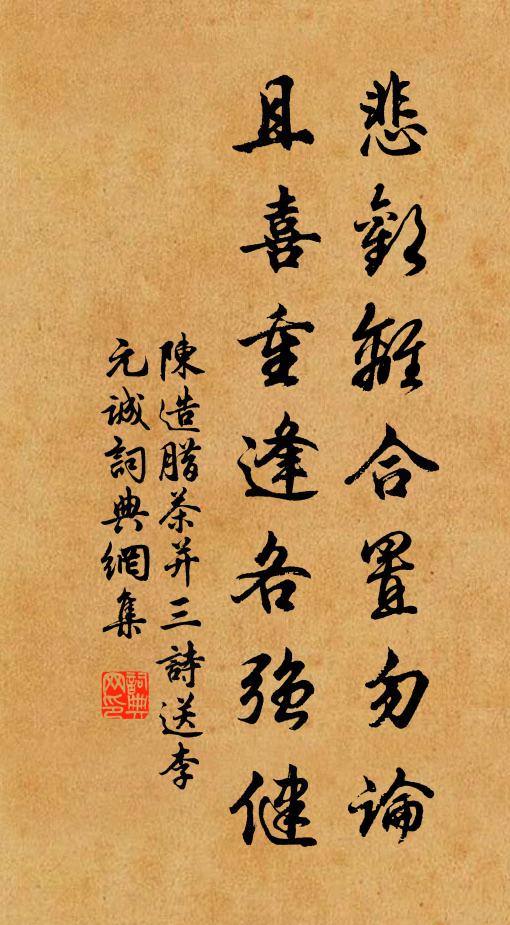 悲歡離合置勿論
且喜重逢各強健
陳造腊茶并三詩送李
元誠詞典網集
詞典网印